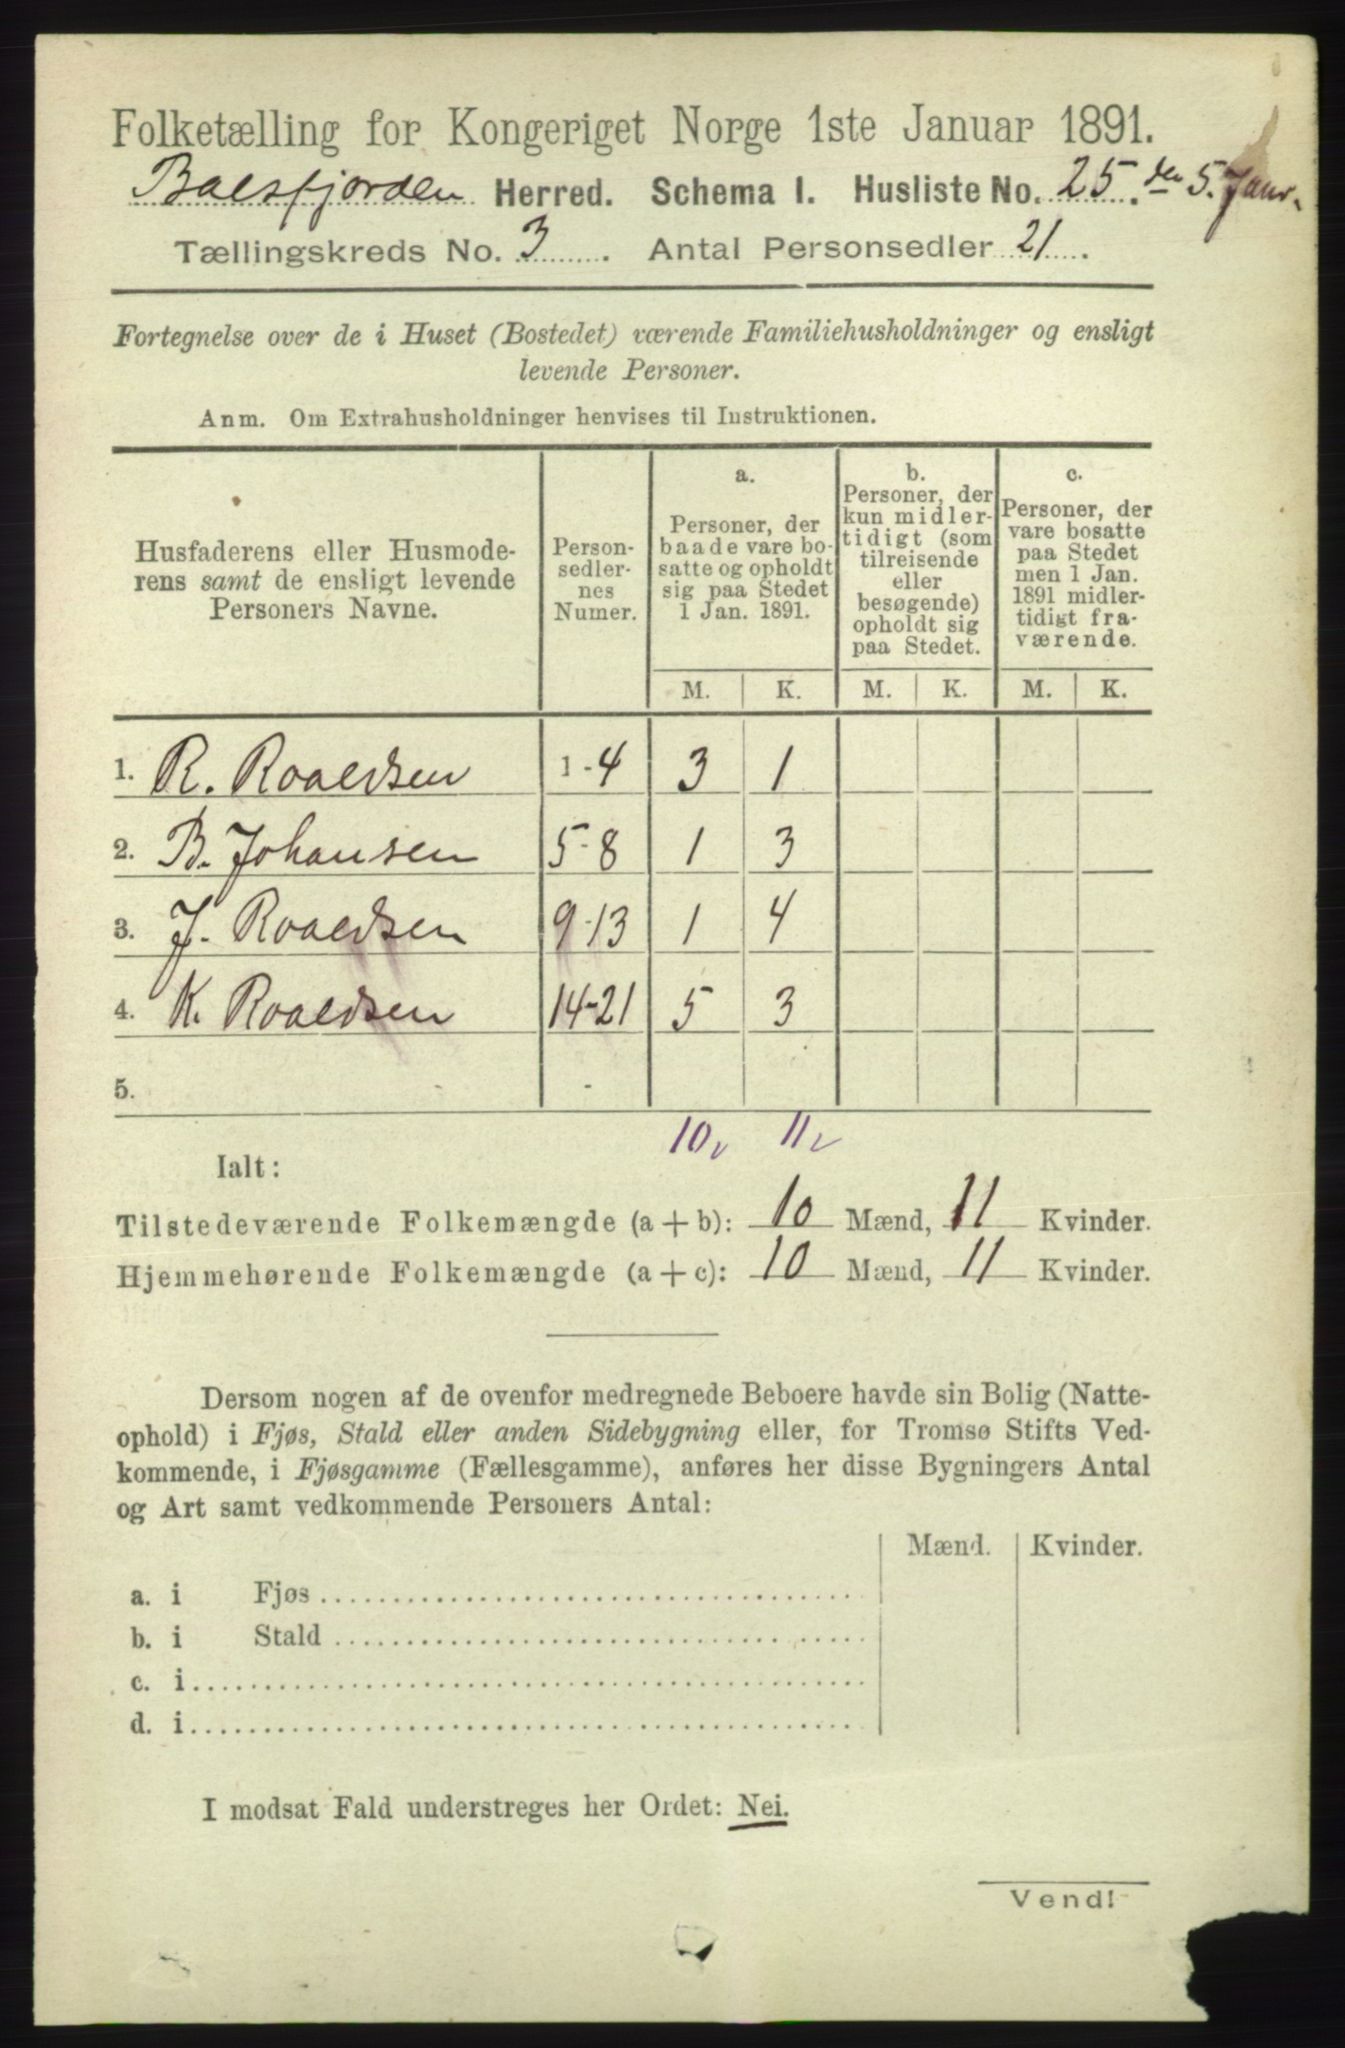 Folketælling for Kongeriget Norge 1ste Januar 1891.
Balsfjorden Herred. Schema I. Husliste No. 25. den 5. Janr.
Tællingskreds No. 3. Antal Personsedler 21.
Fortegnelse over de i Huset (Bostedet) værende Familiehusholdninger og ensligt
levende Personer.
Anm. Om Extrahusholdninger henvises til Instruktionen.
Husfaderens eller Husmode-
rens samt de ensligt levende
Personers Navne.
Person-
sedler-
nes
Numer.
a.
Personer, der
baade vare bo-
satte og opholdt
sig paa Stedet
1 Jan. 1891.
b.
Personer, der
kun midler-
tidigt (som
tilreisende
eller
besøgende)
opholdt sig
paa Stedet.
c.
Personer, der
vare bosatte
paa Stedet
men 1 Jan.
1891 midler-
tidigt fra-
værende.
M. K. M. K. M. K.
1. R. Roaldsen 1-4 3 1
2. B. Johansen 5-8 1 3
3. J. Roaldsen 9-13 1 4
4. K. Roaldsen 14-21 5 3
5. -
10 v 11 v
Ialt:
Tilstedeværende Folkemængde (a + b): 10 Mænd, 11 Kvinder.
Hjemmehørende Folkemængde (a + c): 10 Mænd, 11 Kvinder.
Dersom nogen af de ovenfor medregnede Beboere havde sin Bolig (Natte-
ophold) i Fjøs, Stald eller anden Sidebygning eller, for Tromsø Stifts Ved-
kommende, i Fjøsgamme (Fællesgamme), anføres her disse Bygningers Antal
og Art samt vedkommende Personers Antal:
Mænd. Kvinder.
a. i Fjøs
b. i Stald
c. i
d. i
I modsat Fald understreges her Ordet: Nei.
Vend!